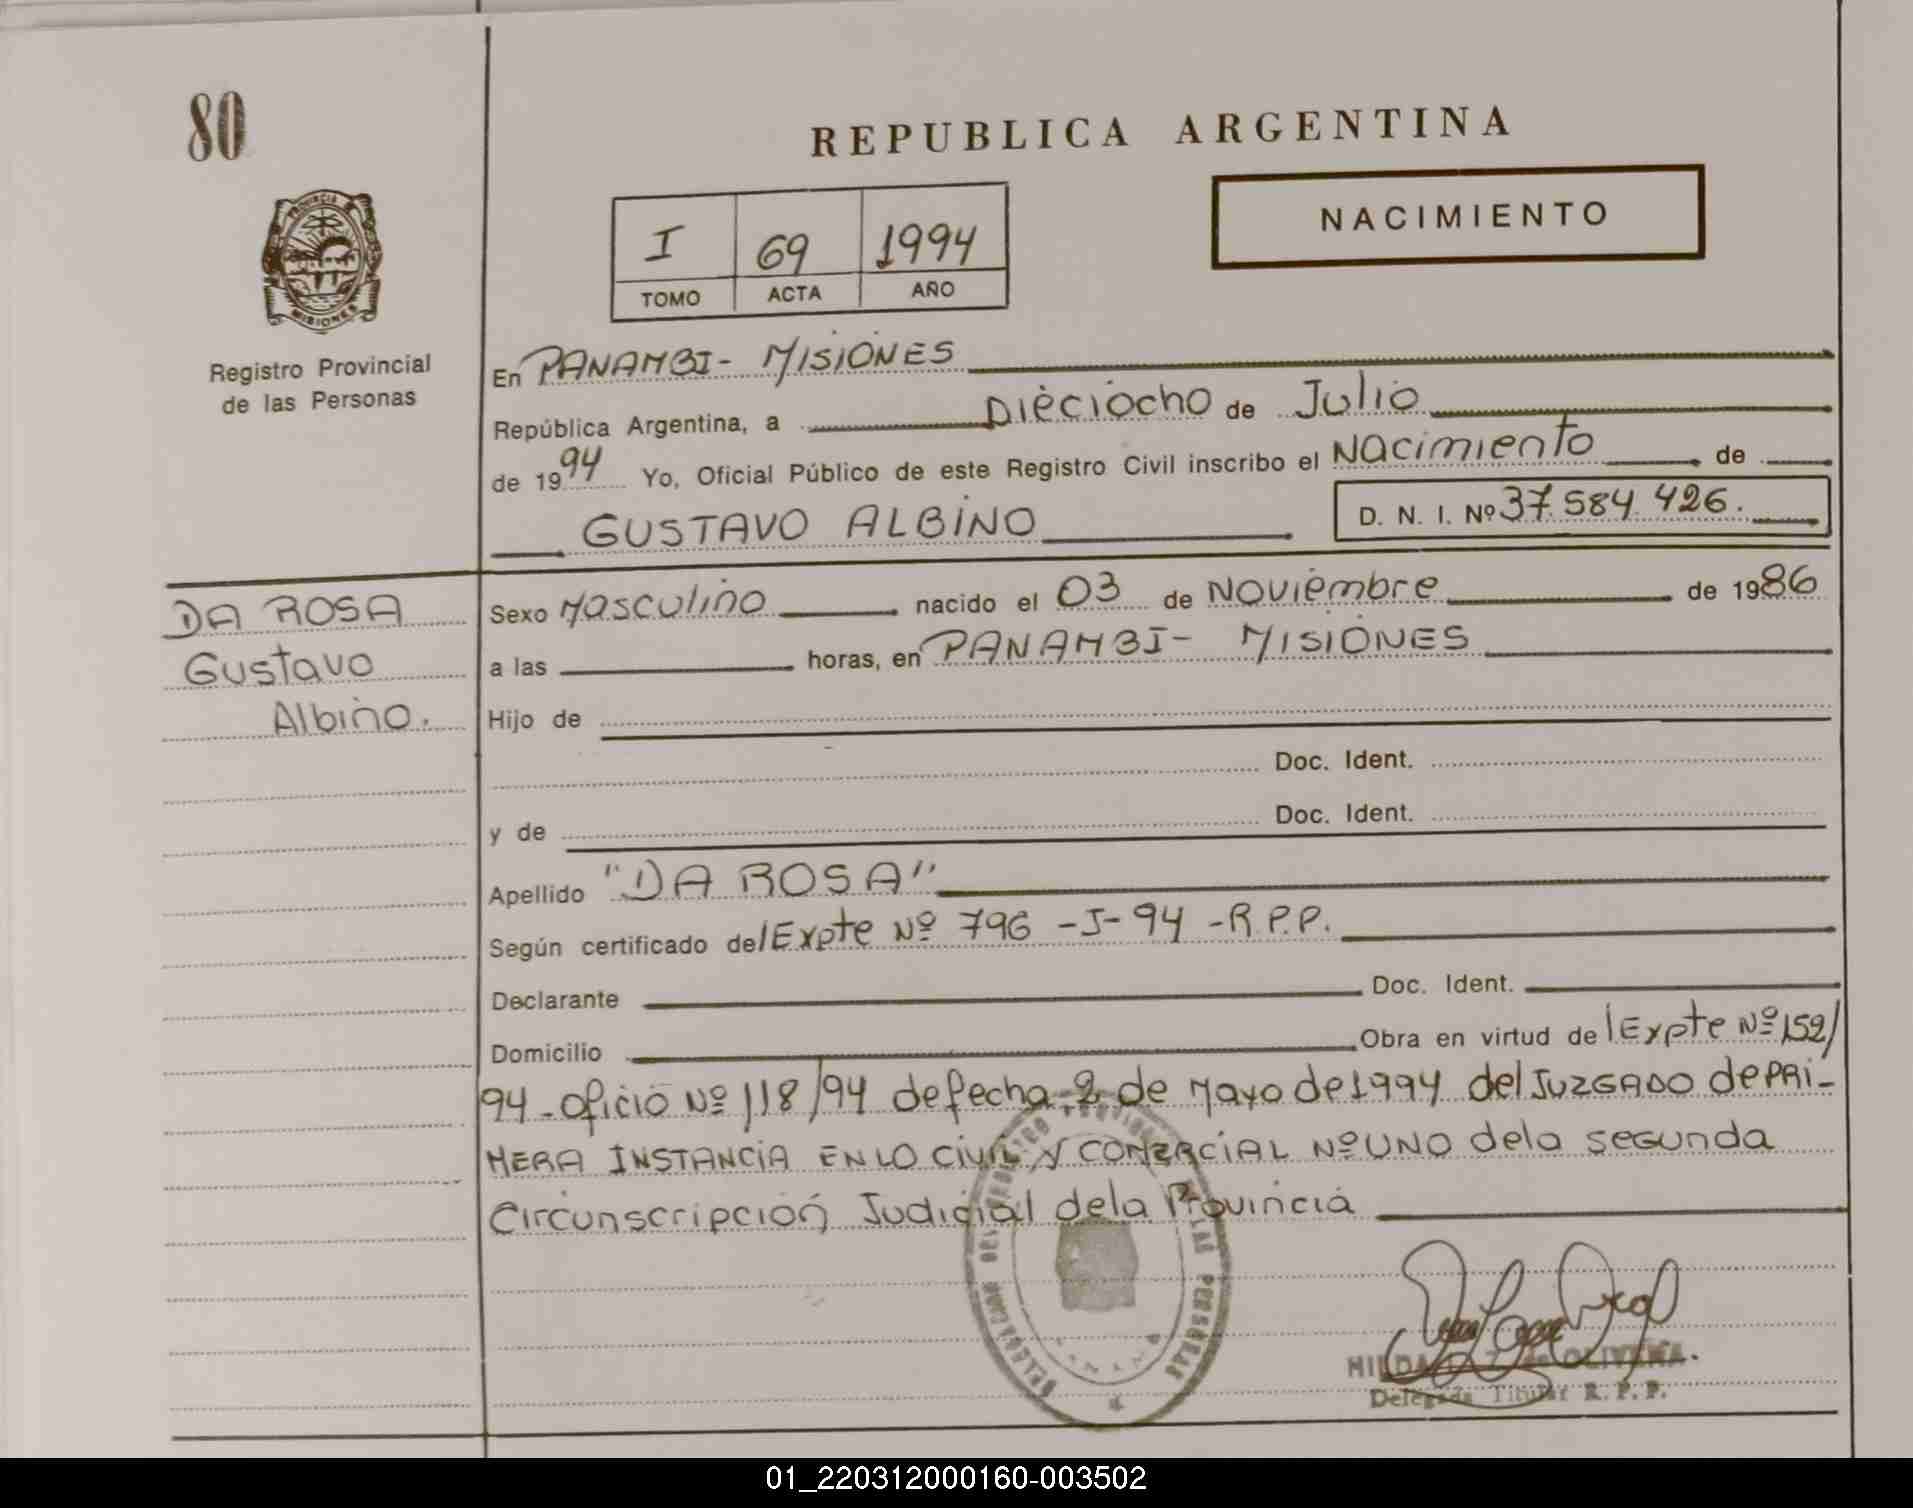 80
REPUBLICA ARGENTINA
PROVINCIA DE
MISIONES
Registro Provincial
de las Personas
I 69 1994
TOMO ACTA AÑO
NACIMIENTO
En PANAMBI - MISIONES
República Argentina, a Dieciocho de Julio
de 1994 Yo, Oficial Público de este Registro Civil inscribo el Nacimiento de
GUSTAVO ALBINO
D. N. I. Nº 37.584.426.
DA ROSA
Gustavo
Albino.
Sexo Masculino nacido el 03 de Noviembre de 1986
a las horas, en PANAMBI - MISIONES
Hijo de
Doc. Ident.
y de Doc. Ident.
Apellido "DA ROSA"
Según certificado del Expte Nº 796 -J-94 -R.P.P.
Declarante Doc. Ident.
Domicilio Obra en virtud del Expte Nº 152/
94 - oficio Nº 118/94 de fecha 2 de Mayo de 1994 del JUZGADO de PRI-
MERA INSTANCIA EN LO CIVIL Y COMERCIAL Nº UNO de la segunda
Circunscripción Judicial de la Provincia
HILDA de OLIVERA.
Delegada Titular R. P. P.
01_220312000160-003502